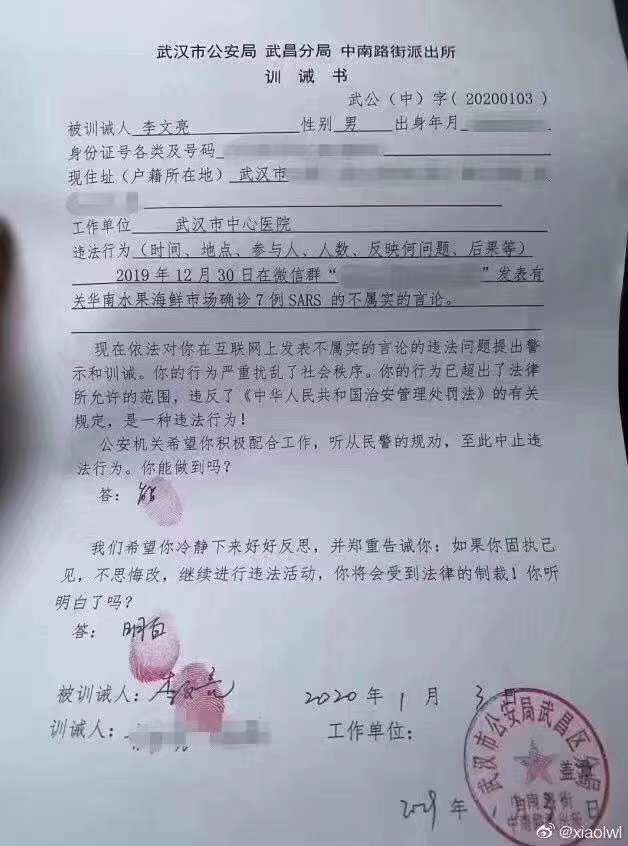 武汉市公安局 武昌分局 中南路街派出所
训 诫 书
武公（中）字( 20200103 )
被训诫人 李文亮 性别 男 出身年月
身份证号各类及号码
现住址(户籍所在地) 武汉市
工作单位 武汉市中心医院
违法行为（时间、地点、参与人、人数、反映何问题、后果等）
2019年12月30日在微信群“ ”发表有
关华南水果海鲜市场确诊7例SARS 的不属实的言论。
现在依法对你在互联网上发表不属实的言论的违法问题提出警
示和训诫。你的行为严重扰乱了社会秩序。你的行为已超出了法律
所允许的范围，违反了《中华人民共和国治安管理处罚法》的有关
规定，是一种违法行为！
公安机关希望你积极配合工作，听从民警的规劝，至此中止违
法行为。你能做到吗？
答： 能
我们希望你冷静下来好好反思，并郑重告诫你：如果你固执己
见，不思悔改，继续进行违法活动，你将会受到法律的制裁！你听
明白了吗？
答： 明白
被训诫人：李文亮 2020 年 1 月 3 日
训诫人： 工作单位：
武汉市公安局武昌区分局
盖章
中南路街
派出所
年 月 日
@xiaolwl